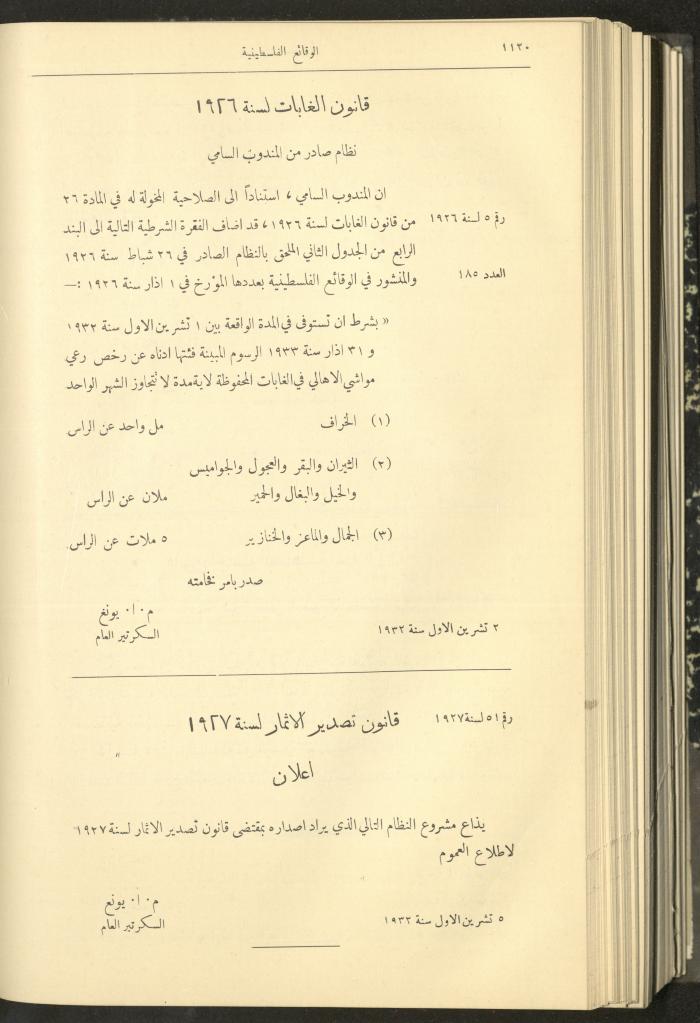 ١١٢٠
الوقائع الفلسطينية
قانون الغابات لسنة ١٩٢٦
نظام صادر من المندوب السامي
ان المندوب السامي ، استناداً الى الصلاحية المخولة له في المادة ٢٦
رقم ٥ لسنة ١٩٢٦
من قانون الغابات لسنة ١٩٢٦ ، قد اضاف الفقرة الشرطية التالية الى البند
الرابع من الجدول الثاني الملحق بالنظام الصادر في ٢٦ شباط سنة ١٩٢٦
العدد ١٨٥
والمنشور في الوقائع الفلسطينية بعددها المؤرخ في ١ اذار سنة ١٩٢٦ :—
« بشرط ان تستوفى في المدة الواقعة بين ١ تشرين الاول سنة ١٩٣٢
و ٣١ اذار سنة ١٩٣٣ الرسوم المبينة فئتها ادناه عن رخص رعي
مواشي الاهالي في الغابات المحفوظة لاية مدة لا تتجاوز الشهر الواحد
(١) الخراف مل واحد عن الراس
(٢) الثيران والبقر والعجول والجواميس
والخيل والبغال والحمير ملان عن الراس
(٣) الجمال والماعز والخنازير ٥ ملات عن الراس.
صدر بامر فخامته
م٠ ا٠ يونغ
٢ تشرين الاول سنة ١٩٣٢
السكرتير العام
رقم ٥١ لسنة ١٩٢٧
قانون تصدير الاثمار لسنة ١٩٢٧
اعلان
يذاع مشروع النظام التالي الذي يراد اصداره بمقتضى قانون تصدير الاثمار لسنة ١٩٢٧
لاطلاع العموم
م٠ ا٠ يونغ
٥ تشرين الاول سنة ١٩٣٢
السكرتير العام